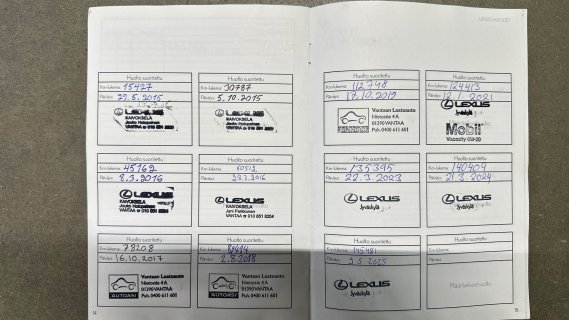 LEXUS HUOLTO
Huolto suoritettu
Km-lukema: 15427
Päiväys: 29.5.2015
LEXUS
KAIVOKSELA
VANTAA
Huolto suoritettu
Km-lukema: 30787
Päiväys: 5.10.2015
LEXUS
KAIVOKSELA
VANTAA
Huolto suoritettu
Km-lukema: 45162
Päiväys: 8.3.2016
LEXUS
KAIVOKSELA
VANTAA
Huolto suoritettu
Km-lukema:
Päiväys:
LEXUS
KAIVOKSELA
Jani Parkkonen
VANTAA 010 851 8204
Huolto suoritettu
Km-lukema: 78208
Päiväys: 16.10.2017
AUTOASI
Vantaan Laatuauto
Nietostie 4A
01390 VANTAA
Puh. 0400 611 601
Huolto suoritettu
Km-lukema:
Päiväys: 2.8.2018
AUTOASI
Vantaan Laatuauto
Nietostie 4A
01390 VANTAA
Puh. 0400 611 601
14
Huolto suoritettu
Km-lukema: 112748
Päiväys: 17.10.2019
Vantaan Laatuauto
Nietostie 4A
01390 VANTAA
Puh. 0400 611 601
Huolto suoritettu
Km-lukema: 124413
Päiväys:
LEXUS
Jyväskylä
Mobil
Viscosity 0W-20
Huolto suoritettu
Km-lukema: 135395
Päiväys: 22.3.2023
LEXUS
Jyväskylä
Huolto suoritettu
Km-lukema: 140404
Päiväys: 21.3.2024
LEXUS
Jyväskylä
Huolto suoritettu
Km-lukema: 145481
Päiväys:
LEXUS
Jyväskylä
Huolto suoritettu
Km-lukema:
Päiväys:
Määräaikaishuolto
15